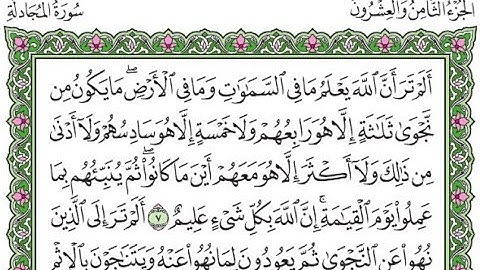 الجُزْءُ الثَّامِنُ وَالعِشْرُونَ سُورَةُ المُجَادلَةِ
أَلَمْ تَرَ أَنَّ ٱللَّهَ يَعْلَمُ مَا فِي ٱلسَّمَٰوَٰتِ وَمَا فِي ٱلْأَرْضِۖ مَا يَكُونُ مِن
نَّجْوَىٰ ثَلَٰثَةٍ إِلَّا هُوَ رَابِعُهُمْ وَلَا خَمْسَةٍ إِلَّا هُوَ سَادِسُهُمْ وَلَآ أَدْنَىٰ
مِن ذَٰلِكَ وَلَآ أَكْثَرَ إِلَّا هُوَ مَعَهُمْ أَيْنَ مَا كَانُوا۟ۖ ثُمَّ يُنَبِّئُهُم بِمَا
عَمِلُوا۟ يَوْمَ ٱلْقِيَٰمَةِۚ إِنَّ ٱللَّهَ بِكُلِّ شَيْءٍ عَلِيمٌ ٧ أَلَمْ تَرَ إِلَى ٱلَّذِينَ
نُهُوا۟ عَنِ ٱلنَّجْوَىٰ ثُمَّ يَعُودُونَ لِمَا نُهُوا۟ عَنْهُ وَيَتَنَٰجَوْنَ بِٱلْإِثْمِ